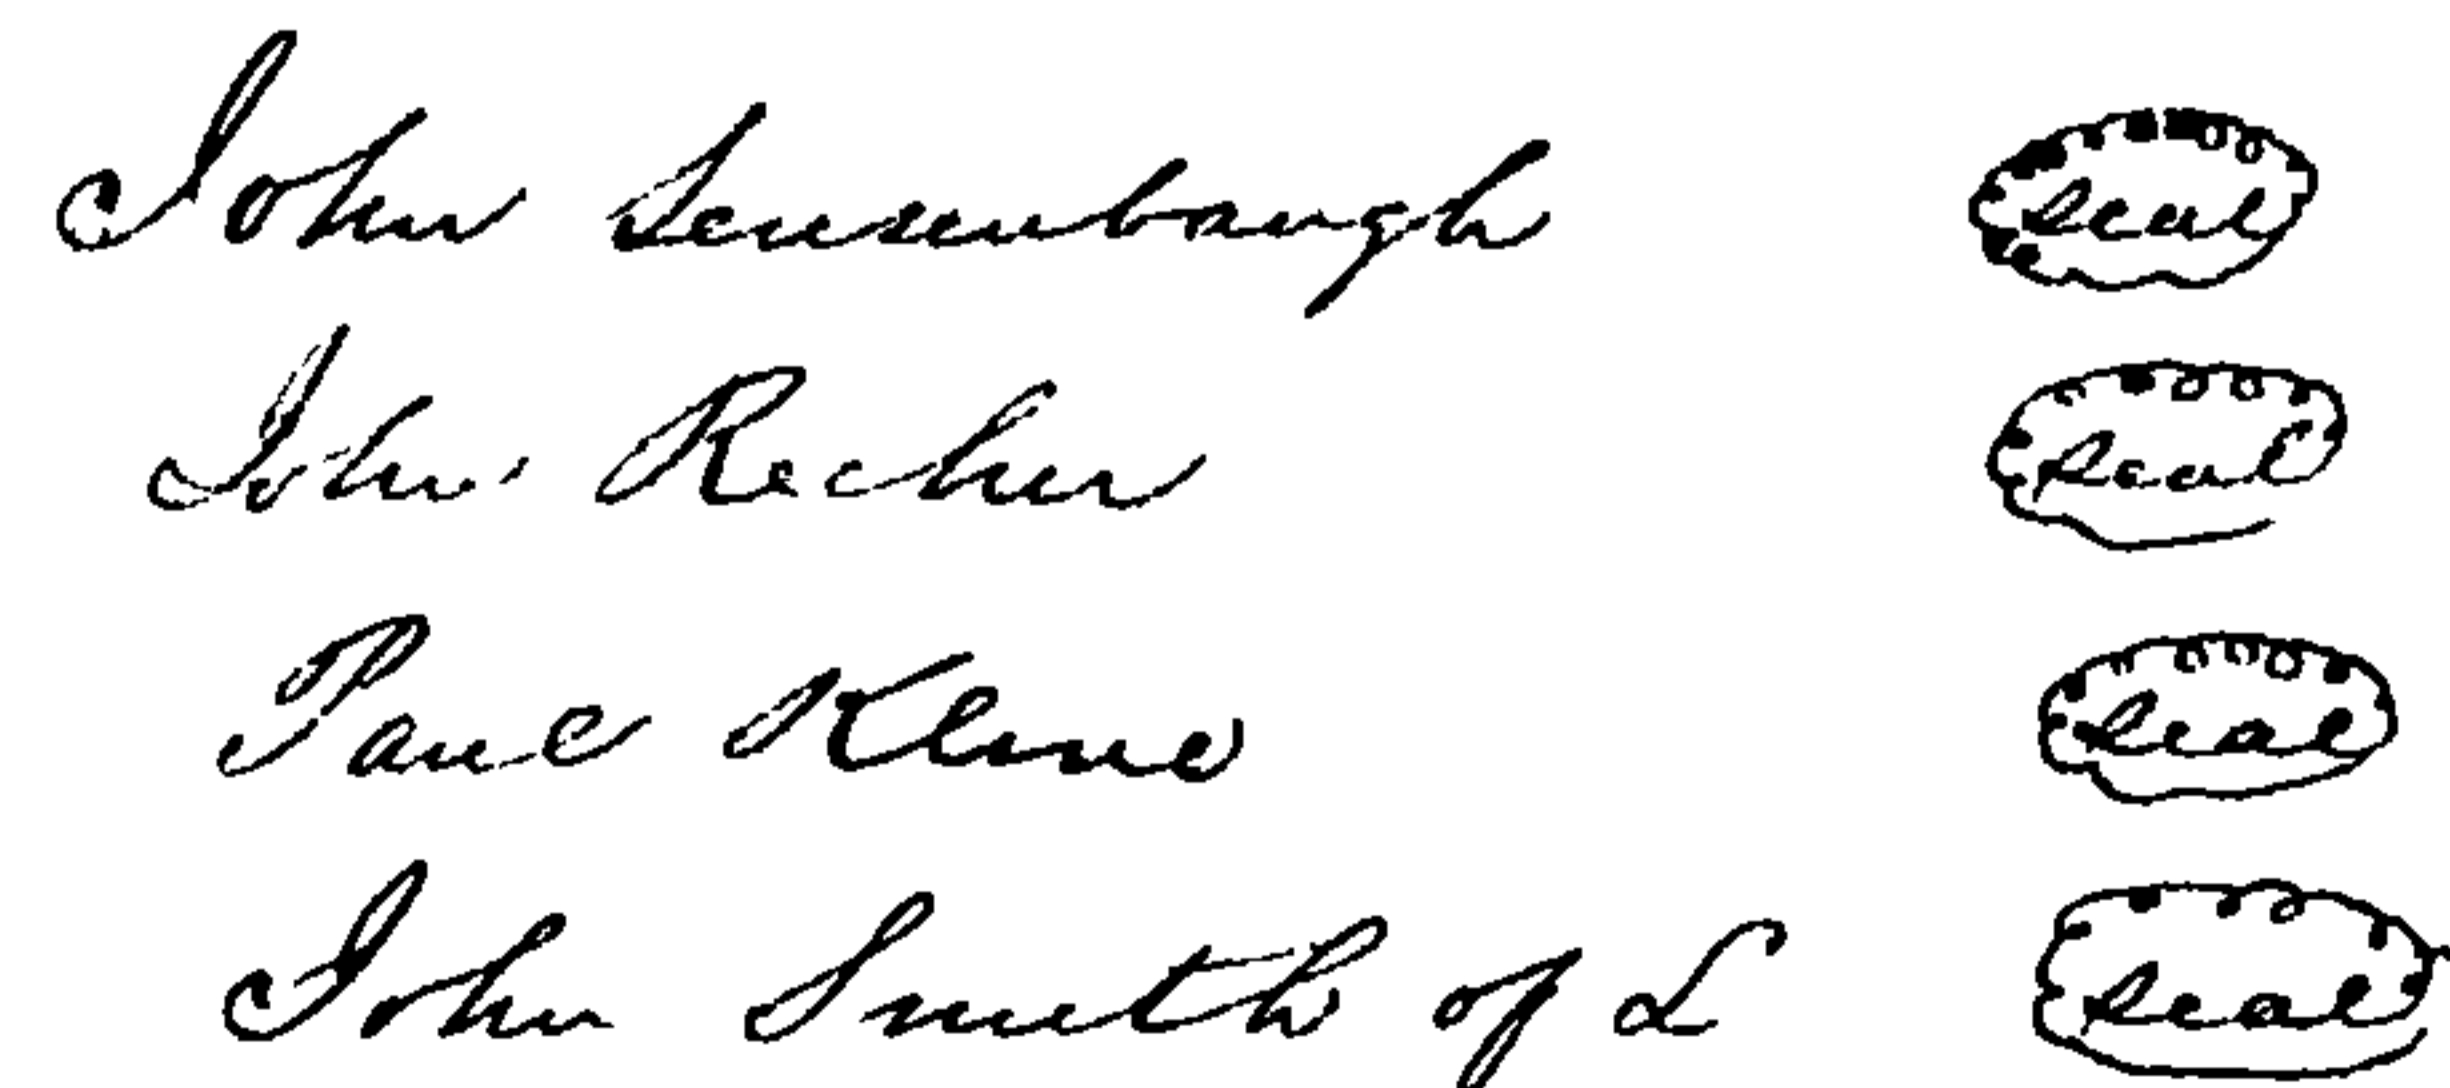 John Sensenbaugh Seal
John Recher Seal
Paul Kline Seal
John Smith of L Seal